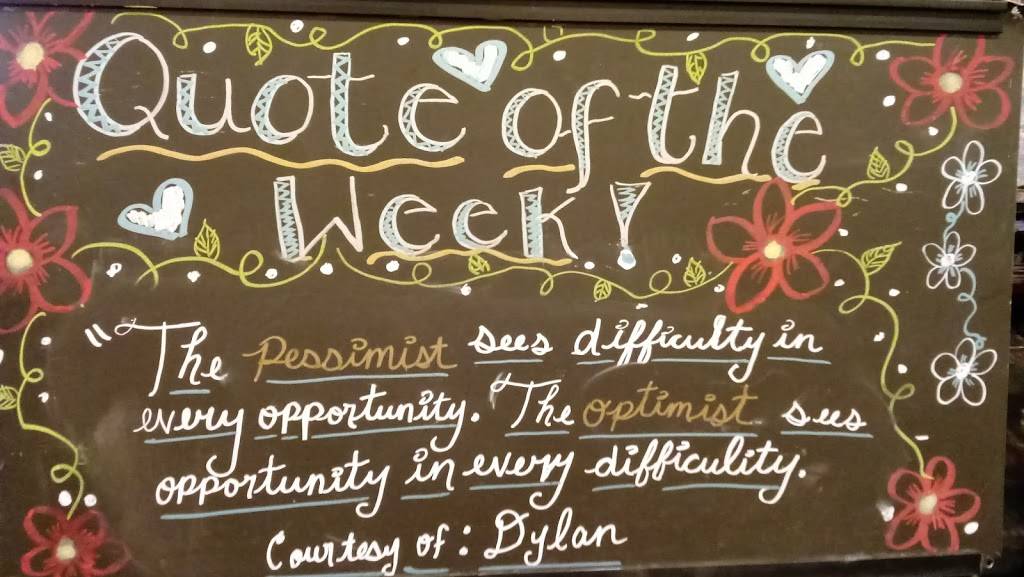 Quote of the
Week!
"The pessimist sees difficulty in
every opportunity. The optimist sees
opportunity in every difficulity.
Courtesy of: Dylan